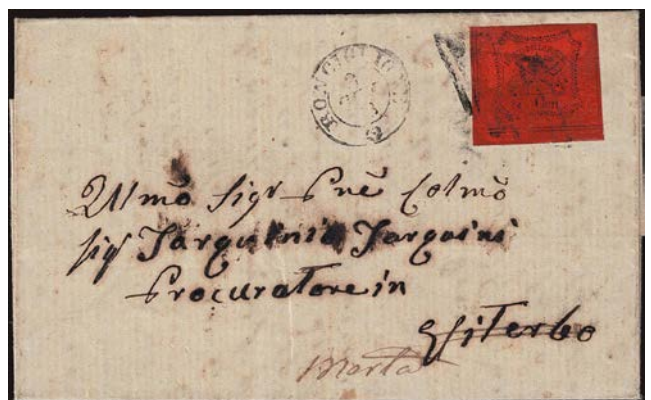 RONCIGLIONE
Cent
Illmõ Sigr Prñe Colmõ
Sigr Tarquinio Tarquini
Procuratore in
Viterbo
Marta